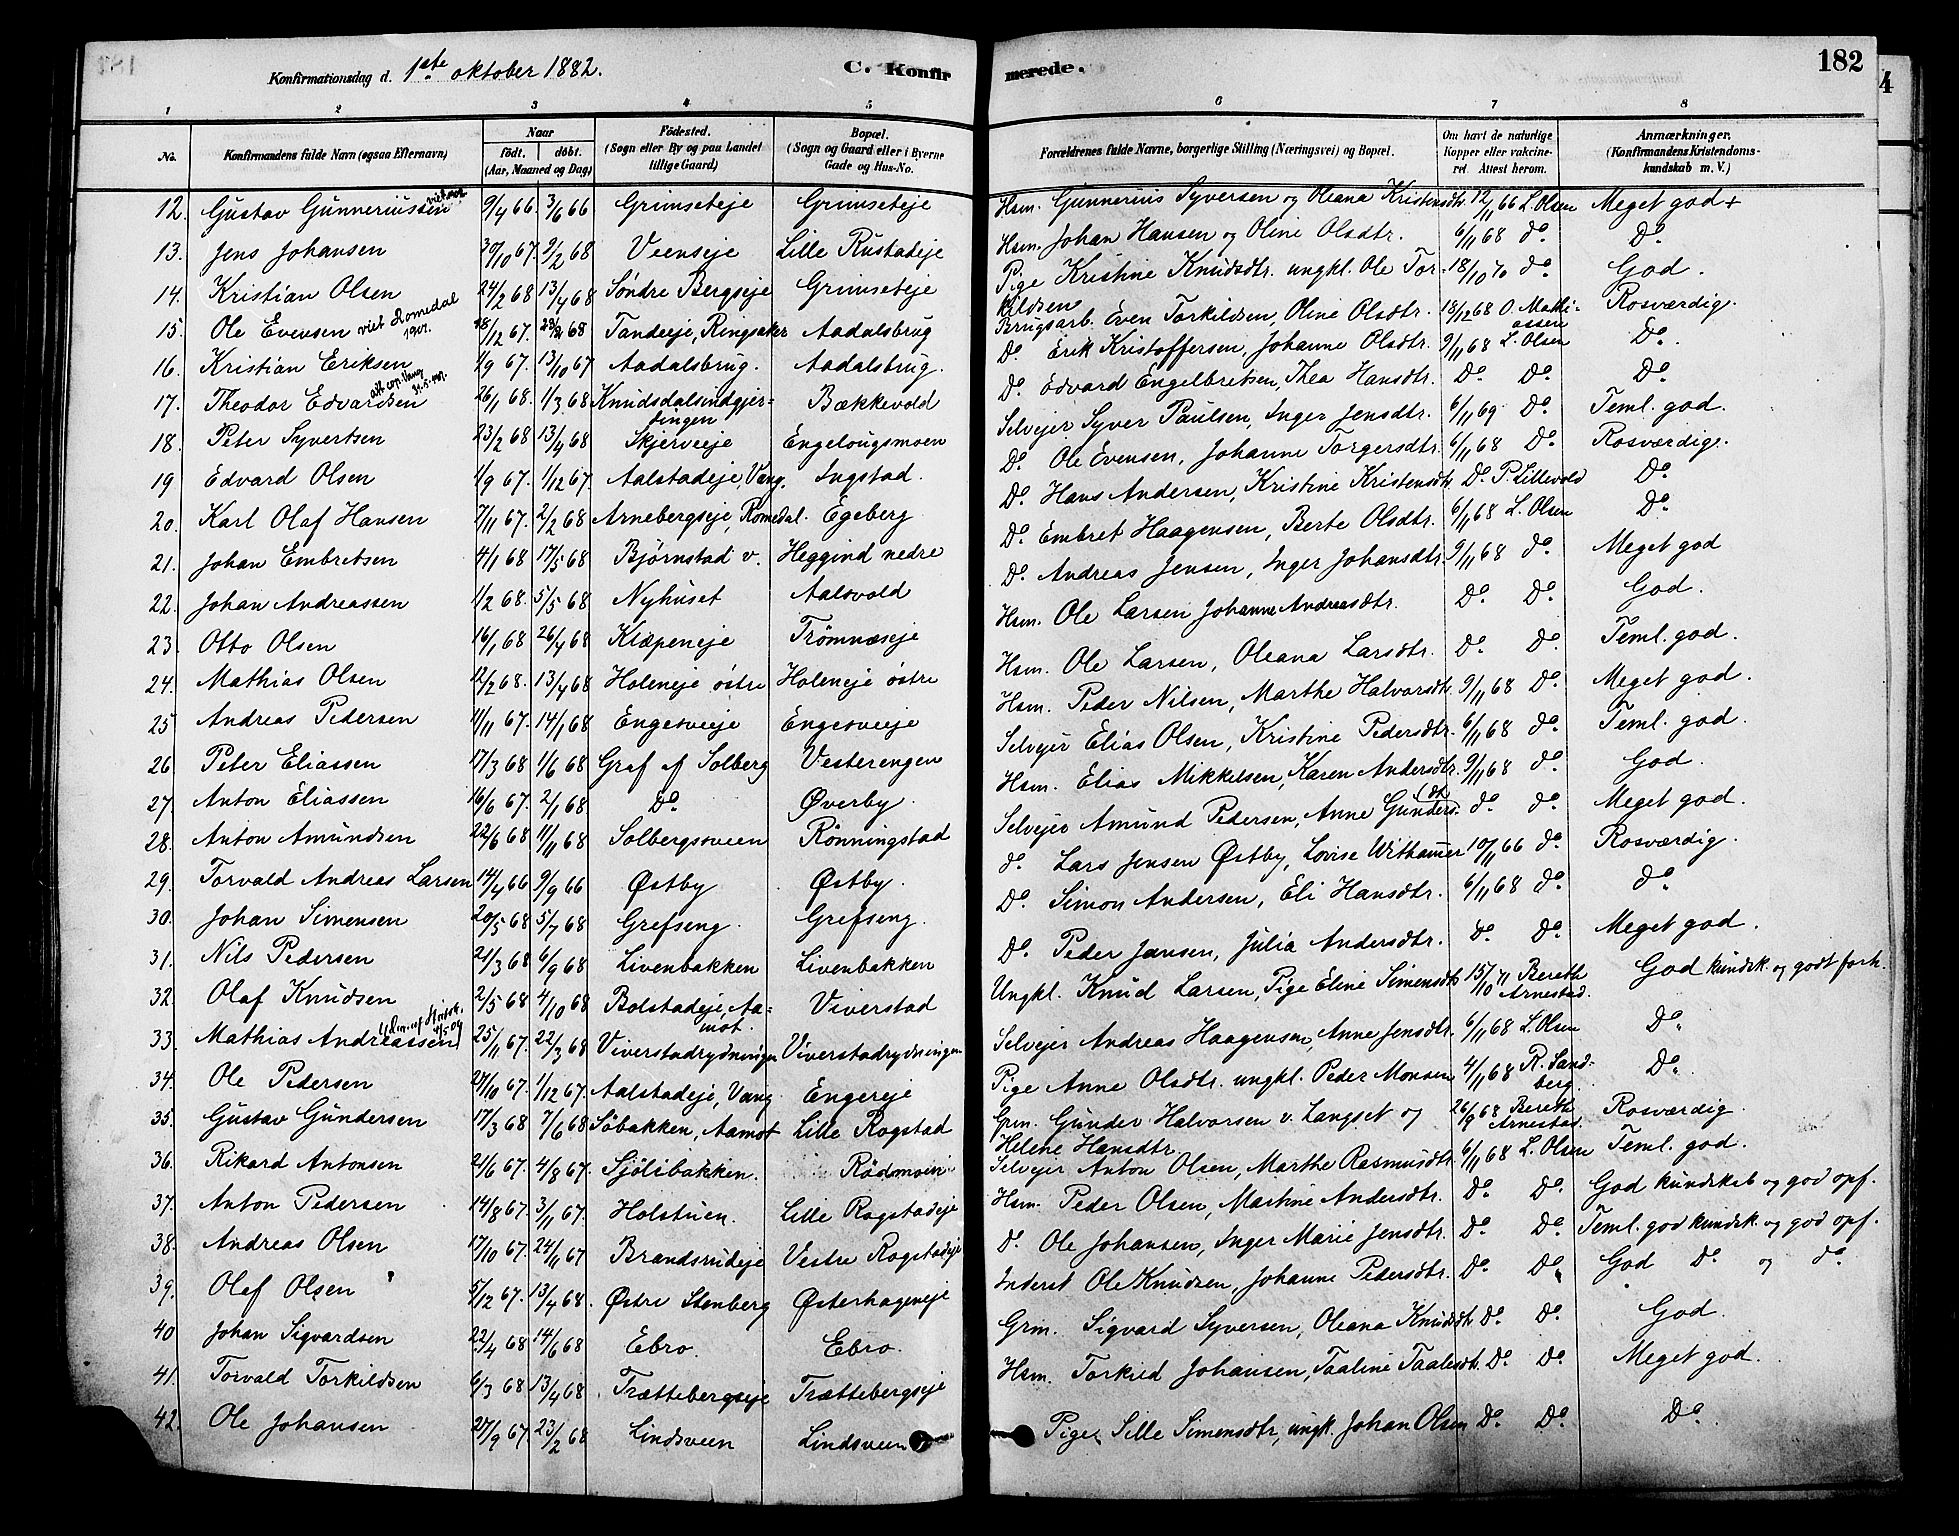 182
Konfirmationsdag d. 1ste oktober 1882. C. Konfirmerede.
1 2 3 4 5 6 7 8
No. Konfirmandens fulde Navn (ogsaa Efternavn) Naar födt. döbt. (Aar, Maaned og Dag) Födested. (Sogn eller By og paa Landet tillige Gaard) Bopæl. (Sogn og Gaard eller i Byerne Gade og Hus-No. Forældrenes fulde Navne, borgerlige Stilling (Næringsvei) og Bopæl. Om havt de naturlige Kopper eller vakcineret. Attest herom. Anmærkninger. (Konfirmandens Kristendomskundskab m. V.)
12. Gustav Gunneriussen 9/4 66. 3/6 66 Grimseteje Grimseteje Hsm. Gunnerius Syversen og Oleana Kristensdtr. 12/11 66 L. Olsen Meget god +
13. Jens Johansen 30/10 67. 9/2 68 Veenseje Lille Rustadeje Hsm. Johan Hansen og Oline Olsdtr. 6/11 68 do. Do.
14. Kristian Olsen 24/2 68 13/4 68 Søndre Bergseje Grimseteje Pige Kristine Knudsdtr. ungkl. Ole Torkildsen 18/10 70 do. God.
15. Ole Evensen viet Romedal 1901. 18/12 67. 23/2 68 Tandeeje, Ringsaker Aadalsbrug Brugsarb. Even Torkildsen, Oline Olsdtr. 18/12 68 O. Mathiassen Rosværdig.
16. Kristian Eriksen 1/9 67. 13/10 67 Aadalsbrug. Aadalsbrug. Do. Erik Kristoffersen, Johanne Olsdtr. 9/11 68 L. Olsen Do.
17. Theodor Edvardsen 26/1 68. 1/3 68 Knudsdalsindgjertingen Bækkevold Do. Edvard Engelbretsen, Thea Hansdtr. Do. Do. Do.
18. Peter Syvertsen 23/2 68 13/4 68 Skjerveeje Engelougsmoen Selvejer Syver Paulsen, Inger Jensdtr. 6/11 69 Do. Teml. god.
19 Edvard Olsen 1/9 67. 1/12 67. Aalstadeje, Vang. Ingstad. Do. Ole Evensen, Johanne Torgersdtr. 6/11 68 Do. Rosværdig.
20. Karl Olaf Hansen 7/11 67. 2/2 68 Arnebergseje, Romedal. Egeberg Do. Hans Andersen, Kristine Kristensdtr. Do. P. Lillevold Do.
21. Johan Embretsen 4/1 68 17/5 68 Bjørnstad v. Heggind nedre Do. Embret Haagensen, Berte Olsdtr. 6/11 68 L. Olsen Do.
22. Johan Andreassen 1/2 68. 5/5 68 Nyhuset Aalsvold Do. Andreas Jensen, Inger Johansdtr. 9/11 68 do. Meget god
23. Otto Olsen 16/1 68 26/4 68 Klæpeneje Trømnæseje Hsm. Ole Larsen Johanne Andreasdtr. Do. Do. God.
24. Mathias Olsen 12/2 68. 13/4 68 Holeneje østre Holeneje østre Hsm. Ole Larsen, Oleana Larsdtr. Do. Do. Teml. god.
25. Andreas Pedersen 11/11 67. 14/1 68 Engesveeje Engesveeje Hsm. Peder Nilsen, Marthe Halvorsdtr. 9/11 68 Do. Meget god.
26. Peter Eliassen 17/3 68 1/6 68 Graf af Solberg Vesterengen Selvejer Elias Olsen, Kristine Pedersdtr. 6/11 68 do. Teml. god.
27. Anton Eliassen 16/6 67. 2/1 68 Do. Øverby. Hsm. Elias Mikkelsen, Karen Andersdtr. 9/11 68 do. God.
28. Anton Amundsen 22/6 68 11/11 68 Solbergsveen Rønningstad Selvejer Amund Pedersen, Anne Gundersdtr. do. do. Meget god.
29. Torvald Andreas Larsen 14/4 66 9/9 66 Østby Østby. do. Lars Jensen Østby, Lovise Withauser 10/11 66 do. Rosværdig.
30. Johan Simensen 20/5 68 5/7 68 Grefseng. Grefseng. Do. Simon Andersen, Eli Hansdtr. 6/11 68 do. Do.
31. Nils Pedersen 21/3 68 6/9 68 Livenbakken Livenbakken Do. Peder Jansen, Julia Andersdtr. do. Do. Meget god.
32. Olaf Knudsen 2/5 68 4/10 68 Bolstadeje, Aamot. Viverstad Ungkl. Knud Larsen, Pige Eline Simensdtr. 15/10 71 Bereth Arnestad. God kundsk. og godt forh.
33. Mathias Andreassen 25/11 67. 22/3 68 Viverstadrydningen Viverstadrydningen Selvejer Andreas Haagensen, Anne Jensdtr. 6/11 68 L. Olsen Do.
34. Ole Pedersen 27/10 67. 1/12 67. Aalstadeje, Vang Engereje Pige Anne Olsdtr. ungkl. Peder Monsen 4/11 68 R. Sandberg. Do.
35. Gustav Gundersen 17/3 68 7/6 68 Søbakken, Aamot Lille Rogstad Grm. Gunder Halvorsen v. Langset og Helene Hansdtr. 26/9 68 Bereth Arnestad. Rosværdig.
36. Rikard Antonsen 21/6 67. 4/8 67. Sjølibakken. Rødmoen Selvejer Anton Olsen, Marthe Rasmusdtr. 6/11 68 L. Olsen Teml. god.
37. Anton Pedersen 14/8 67. 3/11 67. Holstuen. Lille Rogstadeje Hsm. Peder Olsen, Martine Andersdtr. Do. Do. God kundskab og god opf.
38. Andreas Olsen 17/10 67. 24/11 67 Brandsrudeje Vestre Rogstadeje D. Ole Johansen, Inger Marie Jensdtr. Do. Do. Teml. god kundsk. og god opf.
39. Olaf Olsen 5/12 67. 13/4 68. Østre Stenberg Østerhageneje Inderst Ole Knudsen, Johanne Pedersdtr. Do. Do. God Do. og do.
40 Johan Sigvardsen 22/4 68 14/6 68 Ebro. Ebro. Grm. Sigvard Syversen, Oleana Knudsdtr. Do. Do. God.
41. Torvald Torkildsen 6/3 68 13/4 68. Trættebergseje Trættebergseje Hsm. Torkild Johansen, Taaline Taalesdtr. Do. Do. Meget god.
42. Ole Johansen 27/9 67. 23/2 68 Lindsveen Lindsveen Pige Sille Simensdtr, ungk. Johan Olsen Do. Do. Do.